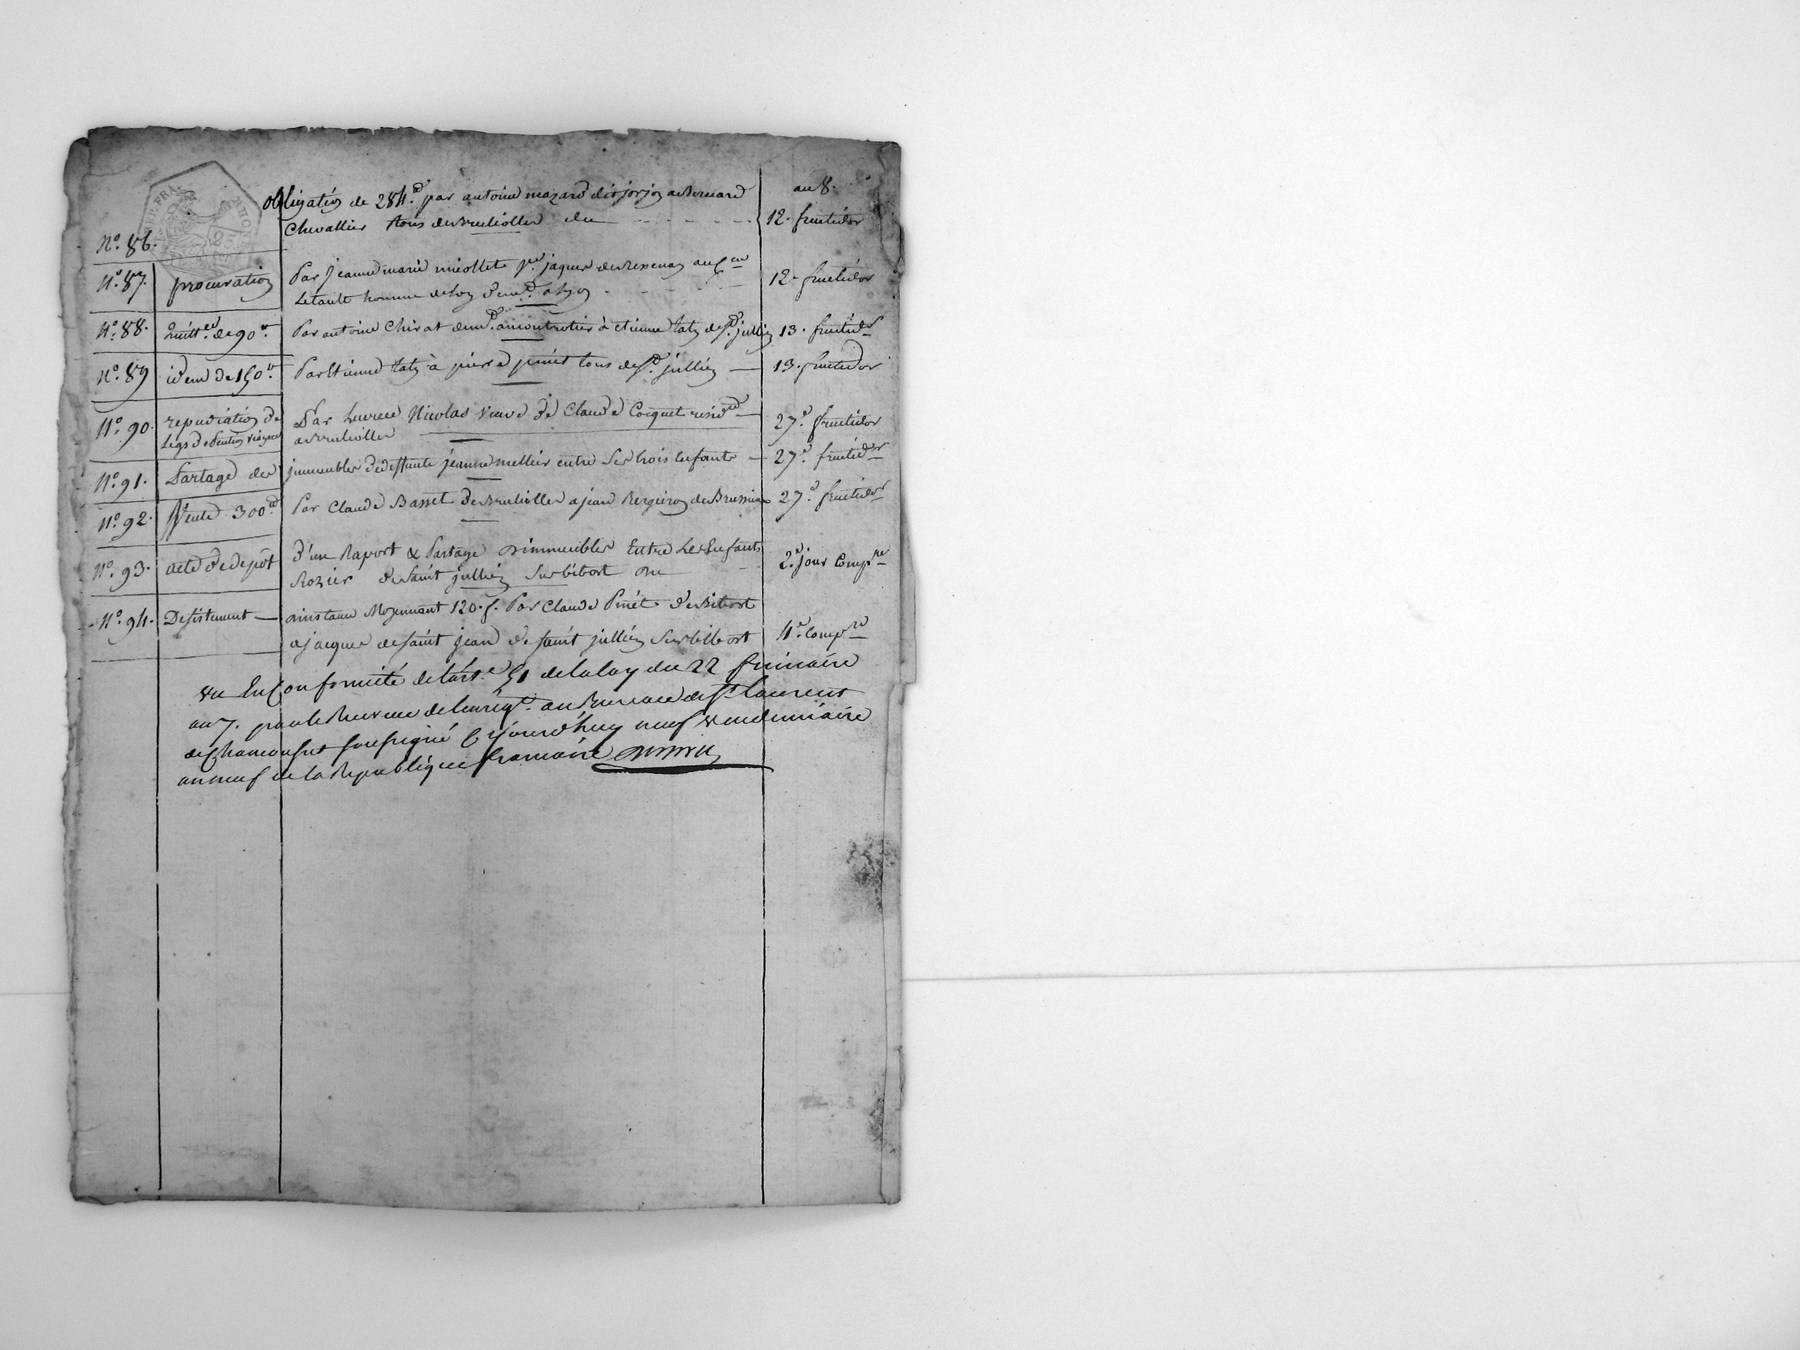 an 8.
obligation de 284.# par antoine mazard dit jorjon a Bernard
Chevallier tous de Brulioller du
12. fructidor
N.º 86.
N.º 87. procuration
Par Jeanne marie miollet jacques de Bessenay au
homme de loy a Lyon
12. fructidor
N.º 88. quitt.ce de 90.#
Par antoine Chirat à etienne de S.t jullien
13. fructidor
N.º 89 idem de 150.#
Par Etienne à pierre pinet tous de S.t jullien
13. fructidor
N.º 90. repudiation de
Legs de pention viagere
Par Lucrece Nicolas veuve de Claude Coquet
a Brulioller
27.e fructidor
N.º 91. Partage des immeubles de deffunte jeanne mellier entre Ses trois Enfants
27.e fructidor
N.º 92. Vente 300.#
Par Claude Basset de Brulioller a jean Bergeron de Brussieu
27.e fructidor
N.º 93. acte de depôt
d'un Raport & Partage d'immeubles Entre Les Enfants
Rozier de Saint jullien Sur bibost du
2.e jour Comp.re
N.º 94. Desistement
d'instance Moyennant 120.f. Par Claude Pinét de Bibost
a jacques de Saint jean de Saint jullien Sur bibost
4.e Comp.re
vu En Conformité de l'art.e 51 de la loy du 22 frimaire
an 7. par le Receveur de l'enreg.t au Bureau de S.t Laurent
de Chamousset soussigné Cejourd'huy neuf vendemiaire
an neuf de la Republique francaise